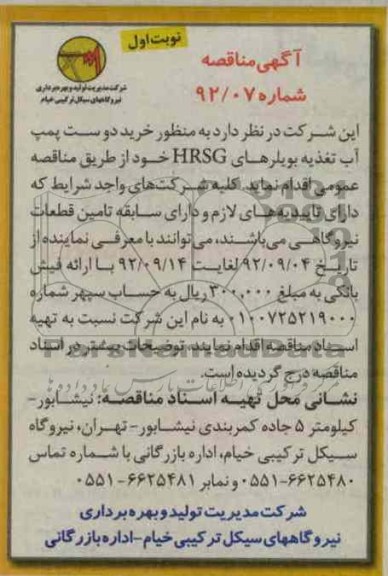 نوبت اول
آگهی مناقصه
شماره ۹۲/۰۷
شرکت مدیریت تولید و بهره برداری
نیروگاههای سیکل ترکیبی خیام
این شرکت در نظر دارد به منظور خرید دو ست پمپ
آب تغذیه بویلرهای HRSG خود از طریق مناقصه
عمومی اقدام نماید. کلیه شرکت‌های واجد شرایط که
دارای تاییدیه‌های لازم و دارای سابقه تامین قطعات
نیروگاهی می‌باشند، می‌توانند با معرفی نماینده از
تاریخ ۹۲/۰۹/۰۴ لغایت ۹۲/۰۹/۱۴ با ارائه فیش
بانکی به مبلغ ۳۰۰,۰۰۰ ریال به حساب سپهر شماره
۰۱۰۰۷۲۵۲۱۹۰۰۰ به نام این شرکت نسبت به تهیه
اسناد مناقصه اقدام نمایند. توضیحات بیشتر در اسناد
مناقصه درج گردیده است.
نشانی محل تهیه اسناد مناقصه: نیشابور-
کیلومتر ۵ جاده کمربندی نیشابور- تهران، نیروگاه
سیکل ترکیبی خیام، اداره بازرگانی با شماره تماس
۰۵۵۱-۶۶۲۵۴۸۰ و نمابر ۶۶۲۵۴۸۱-۰۵۵۱
شرکت مدیریت تولید و بهره برداری
نیروگاههای سیکل ترکیبی خیام-اداره بازرگانی
ParsNamadData